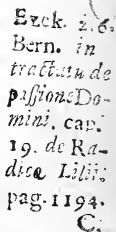 Ezek. 2.6.
Bern. in
tractatu de
passione Do-
mini. cap.
19. de Ra-
dice Lilii;
pag. 1194.
C.